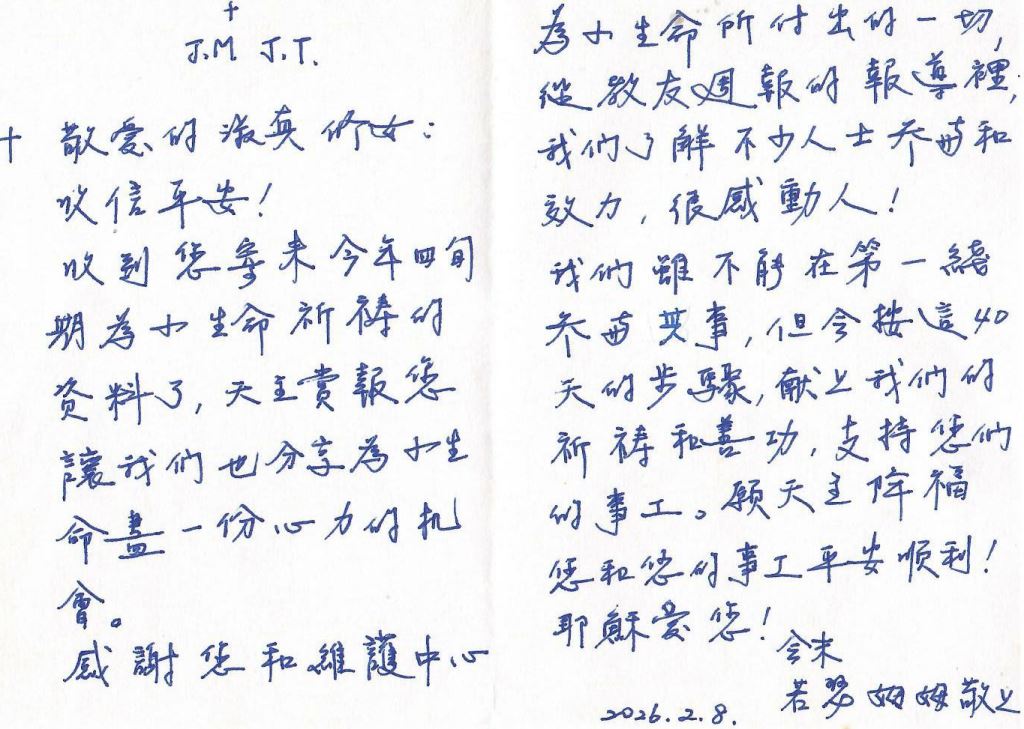 +
J.M J.T.
+ 敬愛的淑真修女：
收信平安！
收到您寄來今年四旬
期為小生命祈禱的
資料了，天主賞報您
讓我們也分享為小生
命盡一份心力的机
會。
感謝您和維護中心
為小生命所付出的一切，
從教友週報的報導裡，
我們了解不少人士參與和
效力，很感動人！
我們雖不能在第一綫
參與共事，但会按這40
天的步驟，献上我們的
祈禱和善功，支持您們
的事工。願天主降福
您和您的事工平安順利！
耶穌愛您！
会末
若瑟姆姆敬上
2026.2.8.